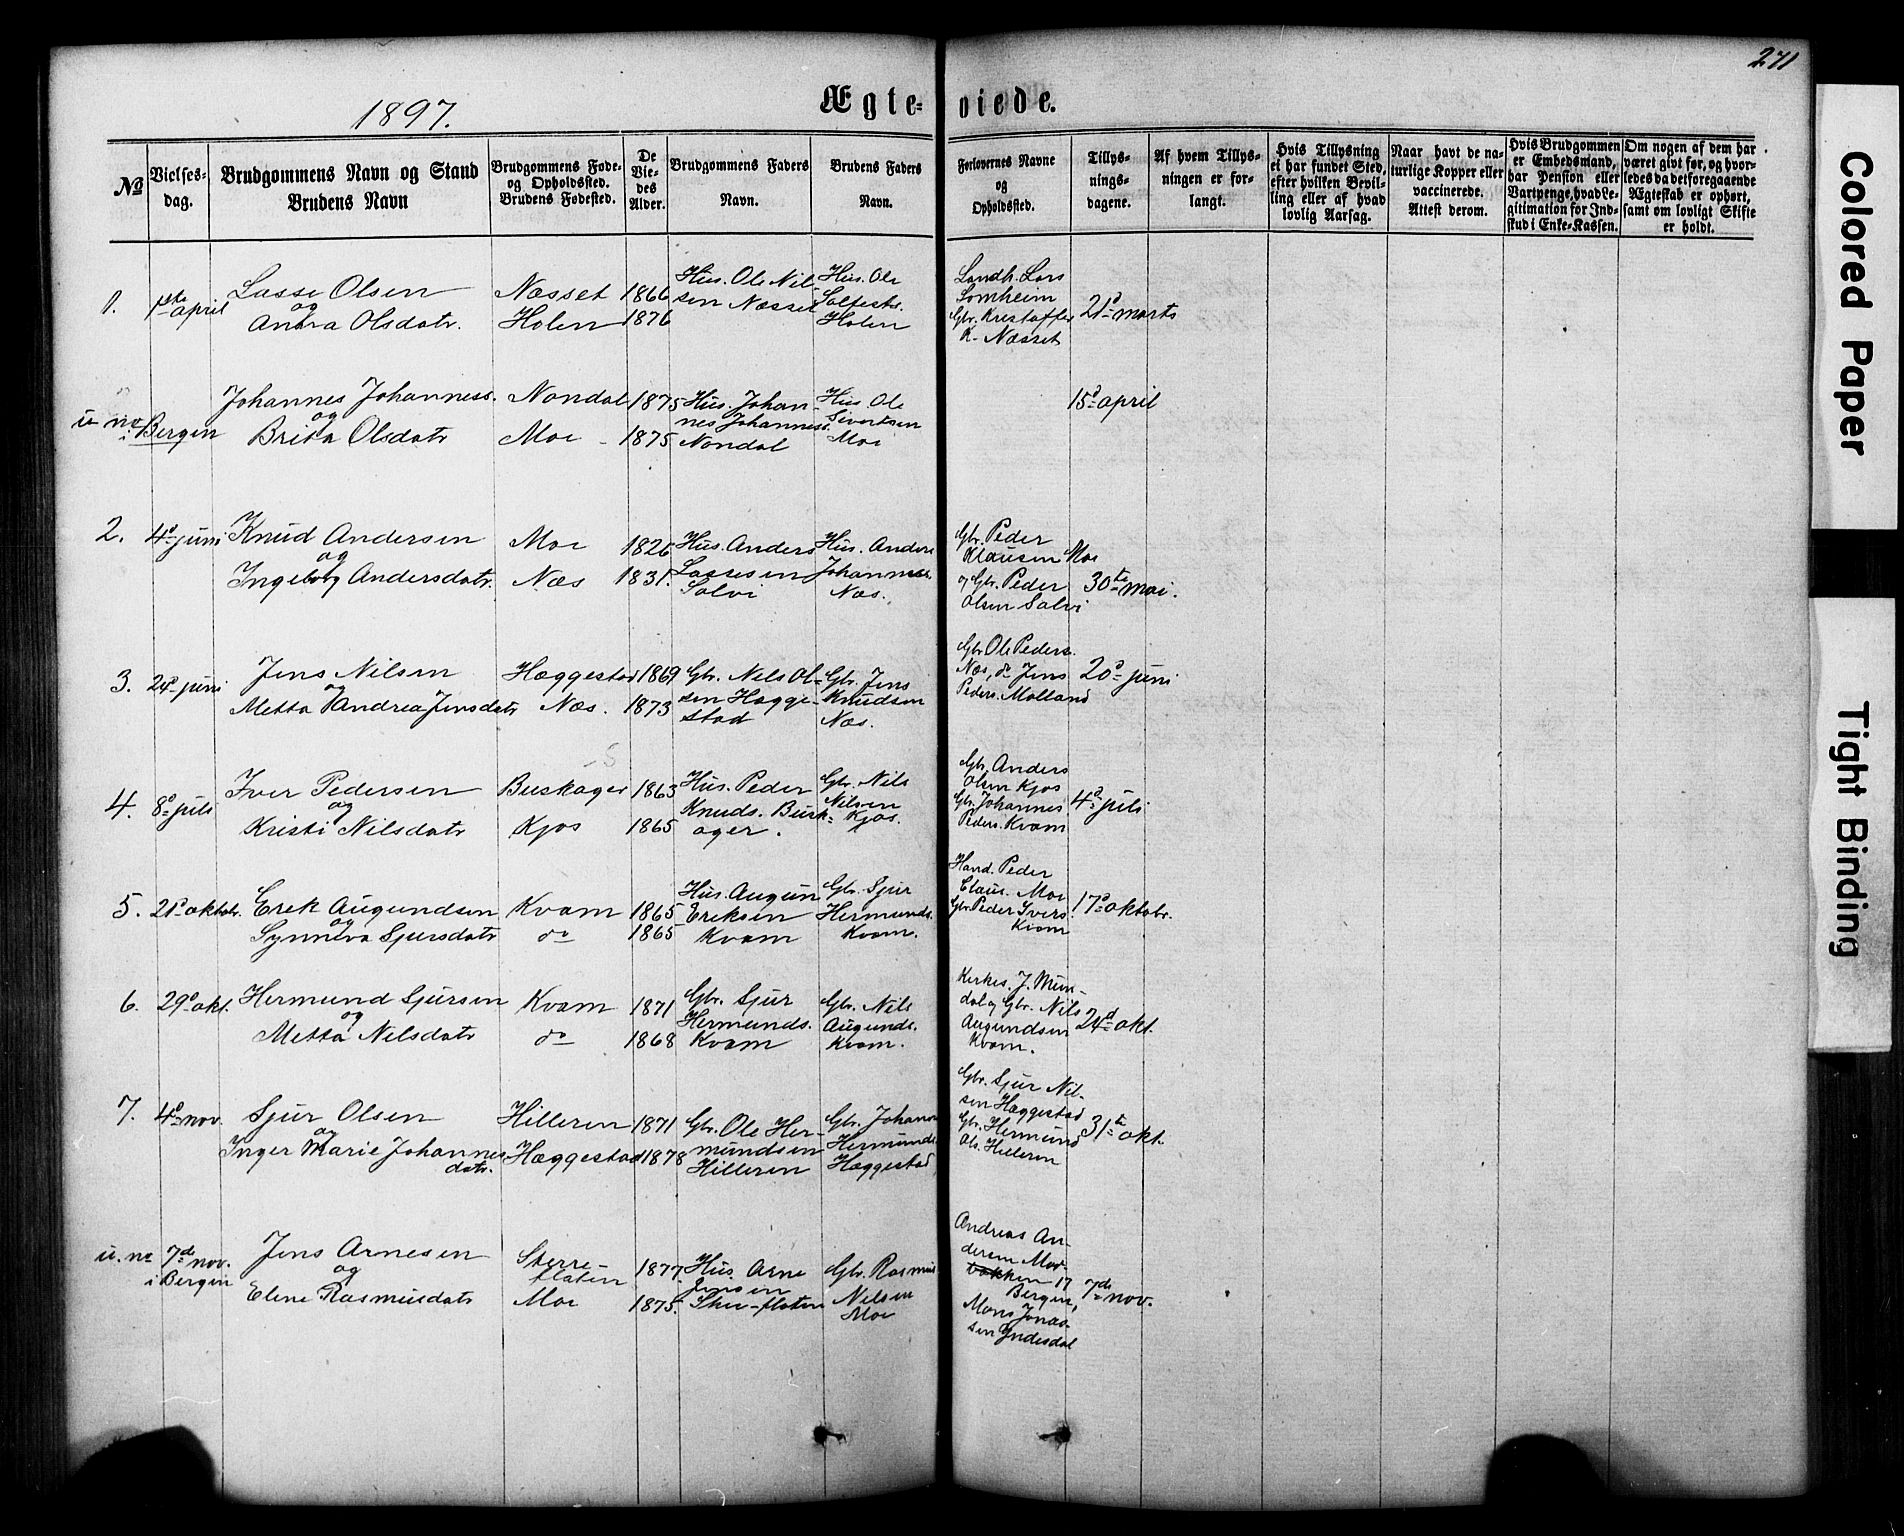 271
1897.
Ægte-
viede.
№
Vielses-
dag.
Brudgommens Navn og Stand
Brudens Navn
Brudgommens Føde-
og Opholdssted.
Brudens Fødested.
De
Vie-
des
Alder.
Brudgommens Faders
Navn.
Brudens Faders
Navn.
Forlovernes Navne
og
Opholdssted.
Tillys-
nings-
dagene.
Af hvem Tillys-
ningen er for-
langt.
Hvis Tillysning
ei har fundet Sted,
efter hvilken Bevil-
ling eller af hvad
lovlig Aarsag.
Naar havt de na-
turlige Kopper eller
vaccinerede.
Attest derom.
Hvis Brudgommen
er Embedsmand,
har Pension eller
Vartpenge, hvad Le-
gitimation for Ind-
skud i Enke-Kassen.
Om nogen af dem har
været givt før, og hvor-
ledes da det foregaaende
Ægteskab er ophørt,
samt om lovligt Skifte
er holdt.
1.
1ste april
Lasse Olsen
og
Anna Olsdatr.
Næsset
Holen
1866
1876
Hus. Ole Nil-
sen Næsset
Hus. Ole
Holen
Landh. Lars
Lomheim
Gbr. Kristoffer
K. Næsset
21d marts
u. no
i Bergen
Johannes Johanness.
og
Brita Olsdatr
Nondal
Moe
1875
1875
Hus. Johan-
nes Johanness.
Nondal
Hus. Ole
Sivertsen
Moe
15d april
2.
4d juni
Knud Andersen
og
Ingeborg Andersdatr.
Moe
Næs
1826
1831.
Hus. Anders
Lassesen
Solvi
Hus. Anders
Johannes.
Næs.
Gbr. Peder
Klausen Moe
og Gbr. Peder
Olsen Solvi
30te mai.
3.
24d juni
Jens Nilsen
og
Metta Andrea Jensdatr
Hæggestad
Næs.
1869
1873
Gbr. Nils Ol-
sen Hægge-
stad
Gbr. Jens
Knudsen
Næs.
Gbr Ole Peders.
Næs, do Jens
Peders. Molland
20d juni
4.
8d juli
Iver Pedersen
og
Kristi Nilsdatr
Buskager
Kjos
1863
1865
Hus. Peder
Knuds. Busk-
ager.
Gbr. Nils
Nilsen
Kjos.
Gbr. Anders
Olsen Kjos
Gbr. Johannes
Peders. Kvam
4d juli
5.
21d oktobr.
Erek Augundsen
og
Synneva Sjursdatr
Kvam
do
1865
1865
Hus. Augun
Eriksen
Kvam
Gbr. Sjur
Hermunds.
Kvam.
Hand. Peder
Claus. Moe
Gbr. Peder Ivers.
Kvam
17d oktobr.
6.
29d okt.
Hermund Sjursen
og
Metta Nilsdatr
Kvam
do
1871
1868
Gbr. Sjur
Hermunds.
Kvam
Gbr. Nils
Augunds.
Kvam.
Kirkes. J. Mun-
dal og Gbr. Nils
Augundsen
Kvam.
24d okt.
7.
4d nov.
Sjur Olsen
og
Inger Marie Johannes
datr.
Hilleren
Hæggestad
1871
1878
Gbr. Ole Her-
mundsen
Hilleren
Gbr. Johann
Hermunds
Hæggestad
Gbr. Sjur Nil-
sen Hæggestad
Gbr. Hermund
Ols. Hilleren
31te okt.
u. no
7de nov.
i Bergen
Jens Arnesen
og
Elene Rasmusdatr
flaten
Moe
1877.
1875.
Hus. Arne
Jensen
flaten
Gbr. Rasmus
Nilsen
Moe
Andreas An-
dersen Mov-
bakken 17
Bergen,
Mons Jonas-
sen Yndesdal
7de nov.
Colored Paper
Tight Binding